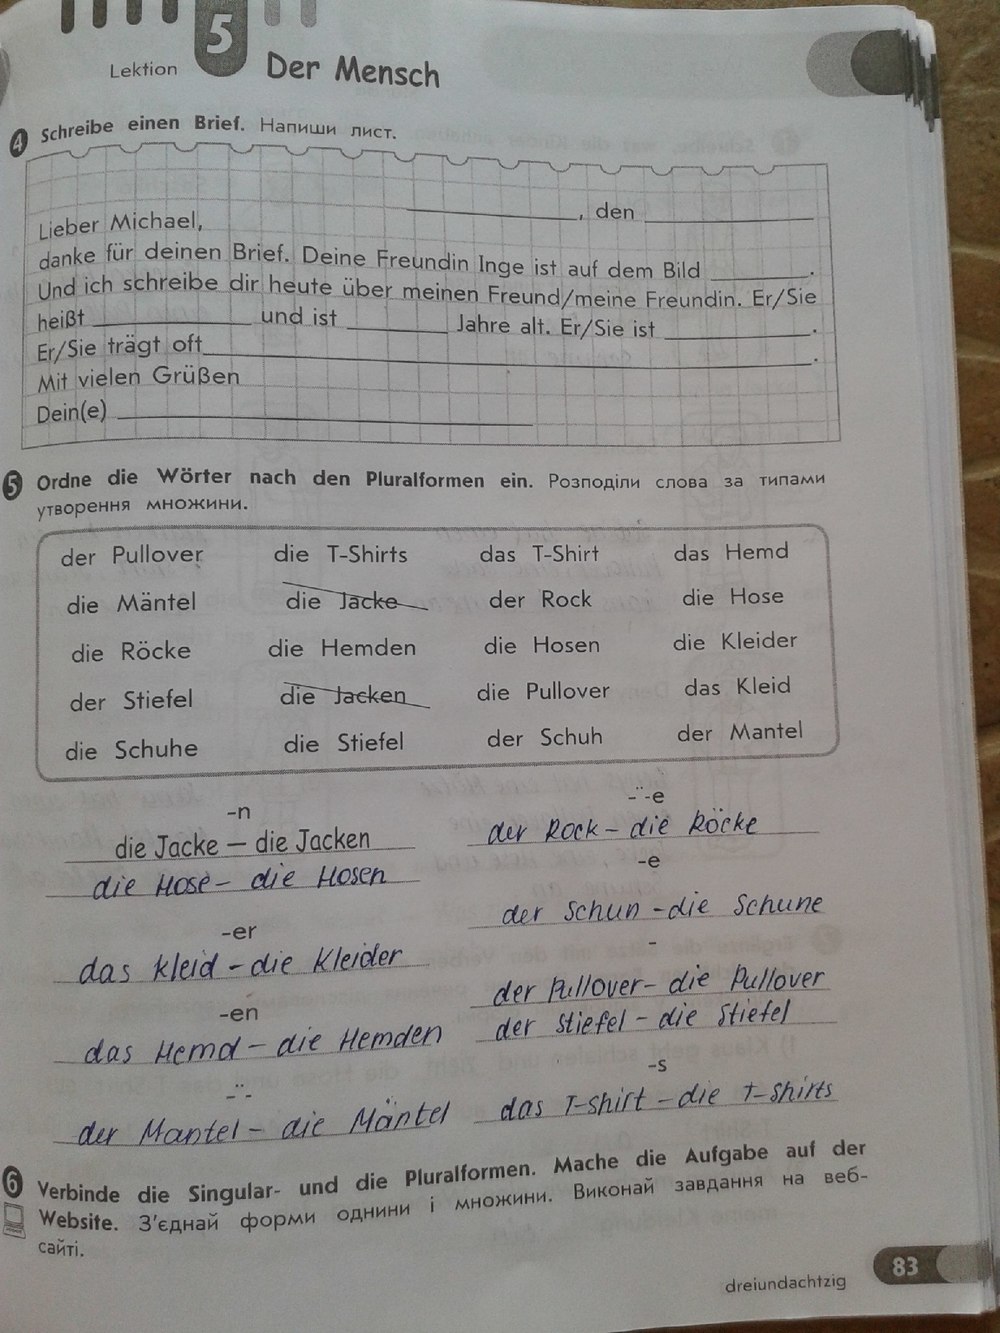 5
Lektion
Der Mensch
4 Schreibe einen Brief. Напиши лист.
_______________, den _______________
Lieber Michael,
danke für deinen Brief. Deine Freundin Inge ist auf dem Bild _________.
Und ich schreibe dir heute über meinen Freund/meine Freundin. Er/Sie
heißt _______________ und ist _________ Jahre alt. Er/Sie ist _____________.
Er/Sie trägt oft_______________________________________.
Mit vielen Grüßen
Dein(e) _______________________________
5 Ordne die Wörter nach den Pluralformen ein. Розподіли слова за типами
утворення множини.
der Pullover die T-Shirts das T-Shirt das Hemd
die Mäntel die Jacke der Rock die Hose
die Röcke die Hemden die Hosen die Kleider
der Stiefel die Jacken die Pullover das Kleid
die Schuhe die Stiefel der Schuh der Mantel
-n
die Jacke — die Jacken
die Hose – die Hosen
-er
das Kleid – die Kleider
-en
das Hemd – die Hemden
-̈-
der Mantel – die Mäntel
-̈-e
der Rock – die Röcke
-e
der Schuh – die Schuhe
-
der Pullover – die Pullover
der Stiefel – die Stiefel
-s
das T-Shirt – die T-Shirts
6 Verbinde die Singular- und die Pluralformen. Mache die Aufgabe auf der
Website. З'єднай форми однини і множини. Виконай завдання на веб-
сайті.
83
dreiundachtzig